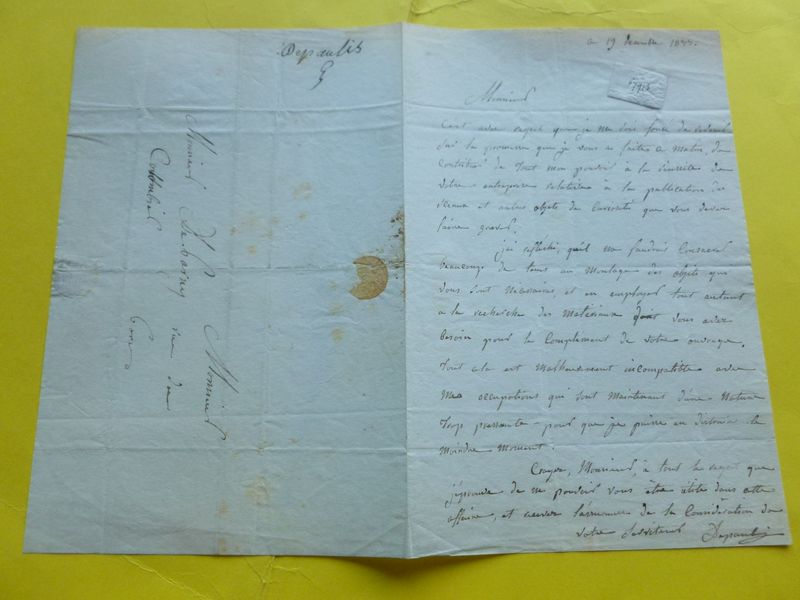 Depaulis
Monsieur
Monsieur
rue du
Colombier
ce 19 décembre
7915
Monsieur
C'est avec regret que je me vois forcé de
sur la promesse que je vous ai faite ce matin, de
contribuer de tout mon pouvoir à la réussite de
votre entreprise relative à la publication de
sceaux et autres objets de curiosité que vous devez
faire graver.
j'ai réfléchi, qu'il me faudrait consacrer
beaucoup de tems au moulage des objets que
vous sont nécessaires, et en employer tout autant
a la recherche des matériaux dont vous avez
besoin pour le complement de votre ouvrage.
Tout cela est malheureusement incompatible avec
mes occupations qui sont maintenant d'une nature
trop pressante pour que je puisse en distraire le
moindre moment.
Croyez, Monsieur, à tout le regret que
j'éprouve de ne pouvoir vous être utile dans cette
affaire, et l'assurance de la considération de
votre serviteur Depaulis